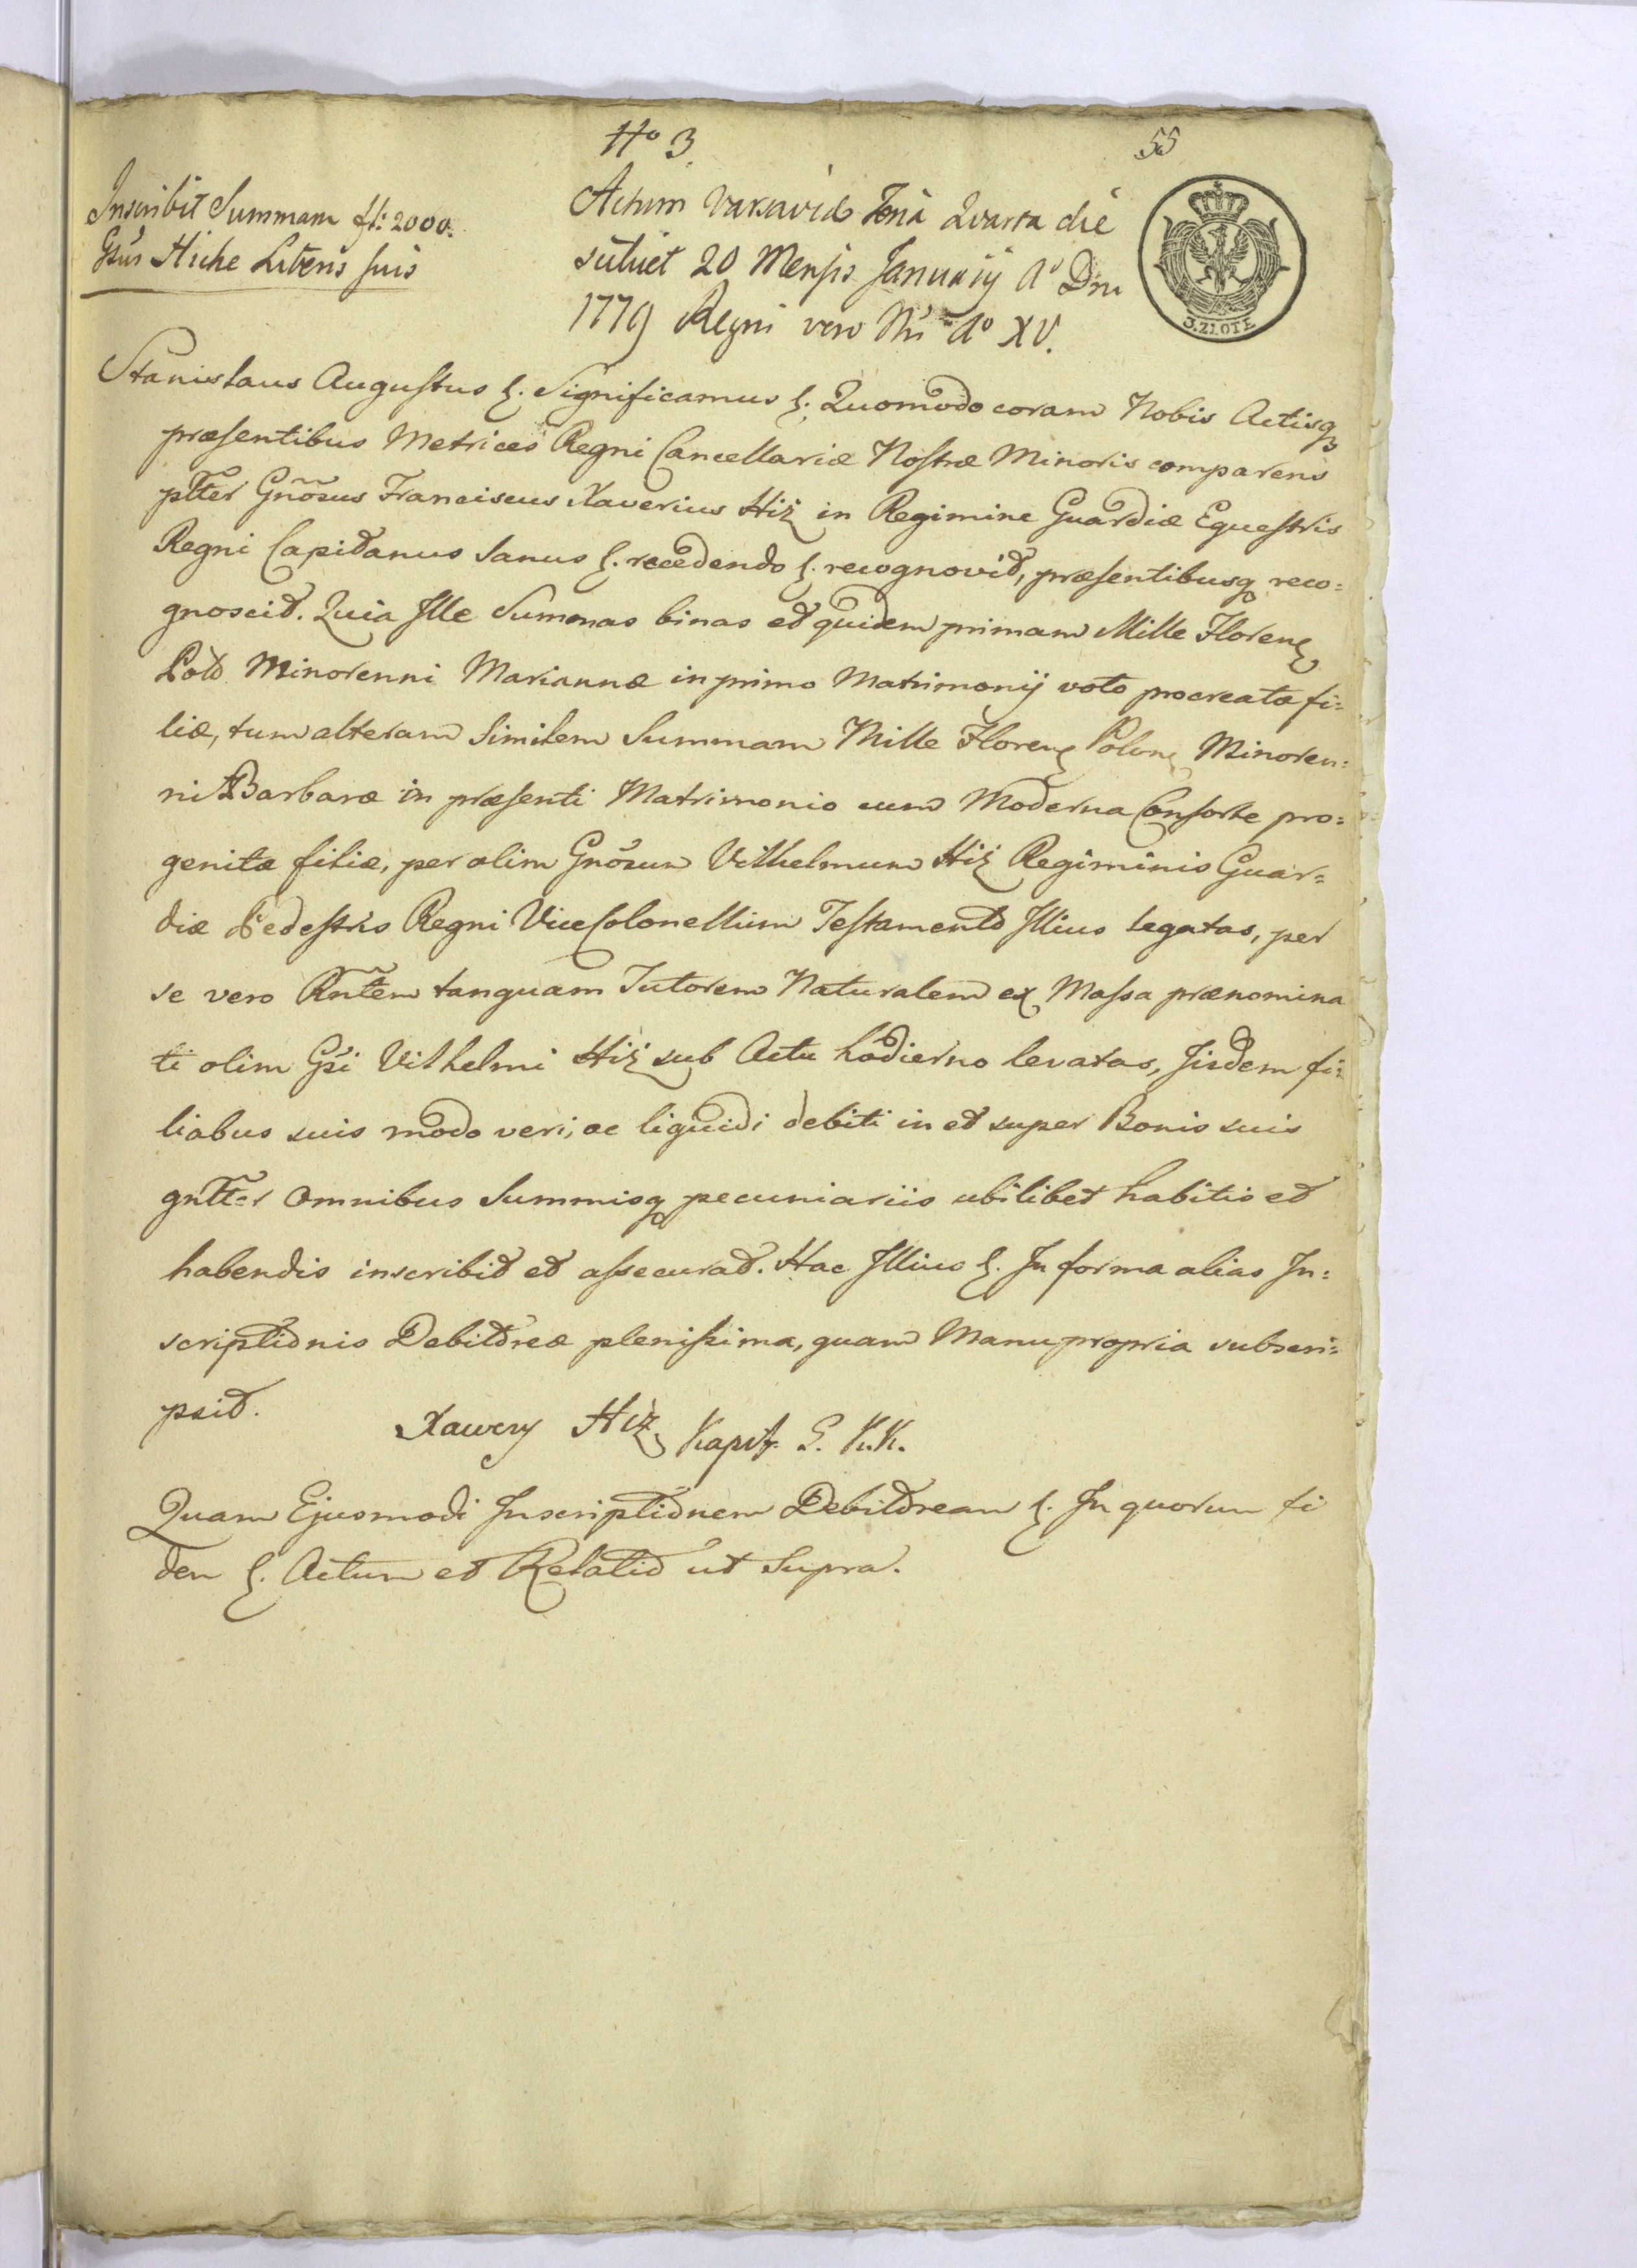 No 3.
55
Inscribit Summam fl: 2000.
Gsus Hiche Liberis suis
Actum Varsaviæ Feria Quarta die
scilicet 20 Mensis Januarij Ao Dni
1779 Regni vero Nri Ao XV.
3.ZŁOTE
Stanislaus Augustus &. Significamus &. Quomodo coram Nobis Actisq
præsentibus Metrices Regni Cancellariæ Nostræ Minoris comparens
pltter Gnõsus Franciscus Xaverius Hiż in Regimine Guardiæ Equestris
Regni Capitanus Sanus &. recedendo &. recognovit, præsentibusq reco:
gnoscit. Quia Ille Summas binas et quidem primam Mille Floren
Pold Minorenni Mariannæ in primo Matrimonij voto procreatæ fi:
liæ, tum alteram Similem Summam Mille Floren Polon Minoren:
ni Barbaræ in præsenti Matrimonio cum Moderna Consorte pro:
genitæ filiæ, per olim Gnõsum Vilhelmum Hiż Regiminis Guar=
diæ Pedestris Regni ViceColonellum Testamento Illius legatas, per
se vero Rntem tanquam Tutorem Naturalem ex Massa prænomina
ti olim Gsi Vilhelmi Hiż sub Actu hodierno levatas, Iisdem fi:
liabus suis modo veri, ac liquidi debiti in et super Bonis suis
gnltter omnibus Summisq pecuniariis ubilibet habitis et
habendis inscribit et assecurat. Hac Illius &. In forma alias In:
scriptionis Debitoreæ plenissima, quam Manu propria subscri:
psit.
Xawery Hiż Kapit. G. K.K.
Quam Ejusmodi Inscriptionem Debitoream &. In quorum fi
dem &. Actum et Relatio ut Supra.